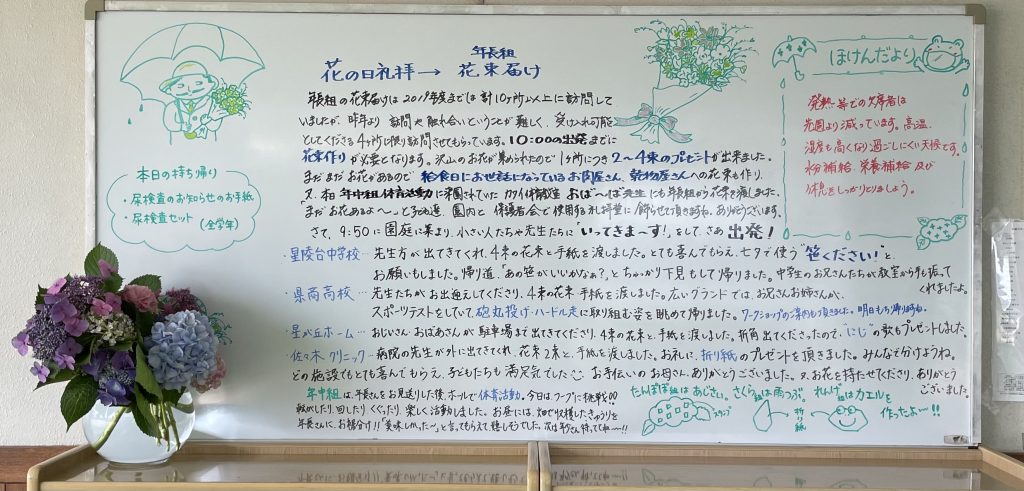 年長組
花の日礼拝→ 花束届け
年長組の花束届けは2019年度までは計10ヶ所以上に訪問して
いましたが、昨年より訪問や触れ合いということが難しく、受け入れ可能
としてくださる4ヶ所に限り訪問させてもらっています。10:00の出発までに
花束作りが必要となります。沢山のお花が集められたので1ヶ所につき2〜4束のプレゼントが出来ました。
まだまだお花があるので給食日にお世話になっているお肉屋さん、乾物屋さんへの花束も作り、
又、本日年中組体育活動に来園されていた体育教室おば〜ば先生にも年長組から花束を渡しました。
"まだお花あるよ〜"と子ども達。園内と保護者会で使用する礼拝堂に飾らせて頂きますね。ありがとうございます。
さて、9:50に園庭に集まり、小さい人たちや先生たちに"いってきま〜す!"をして、さあ出発!
・星陵台中学校…先生方が出てきてくれ、4束の花束と手紙を渡しました。とても喜んでもらえ、七夕で使う"笹ください!"と
お願いもしました。帰り道、"あの笹がいいかなぁ?"とちゃっかり下見もして帰りました。中学生のお兄さんたちが教室から手を振って
くれましたよ。
・県商高校…先生たちがお出迎えしてくださり、4束の花束、手紙を渡しました。広いグランドでは、お兄さんお姉さんが、
スポーツテストをしていて、砲丸投げ・ハードル走に取り組む姿を眺めて帰りました。ワークショップのご案内も頂きました。
・星が丘ホーム…おじいさん、おばあさんが駐車場まで出てきてくださり、4束の花束と、手紙を渡しました。折角出てくださったので、"にじ"の歌もプレゼントしました。
・佐々木クリニック…病院の先生が外に出てきてくれ、花束2束と、手紙を渡しました。お礼に、折り紙のプレゼントを頂きました。みんなで分けようね。
どの施設でもとても喜んでもらえ、子どもたちも満足気でした。お手伝いのお母さん、ありがとうございました。又、お花を持たせてくださり、ありがとう
ございました。
年中組は、年長さんをお見送りした後、ホールで体育活動。今日はフープに挑戦
転がしたり、回したり、くぐったり、楽しく活動しました。お昼には、畑で収穫したきゅうりを
年長さんに、お裾分け!!"美味しかった〜"と言ってもらえて嬉しそうでした。
たんぽぽ組はあじさい。さくら組は雨つぶ。れんげ組はカエルを
作ったよ〜!!
スタンプ
折り紙
本日の持ち帰り
・尿検査のお知らせのお手紙
・尿検査セット(全学年)
ほけんだより
発熱等での欠席者は
先週より減っています。高温、
湿度も高くなり過ごしにくい天候です。
水分補給、栄養補給及び
休息をしっかりとりましょう。